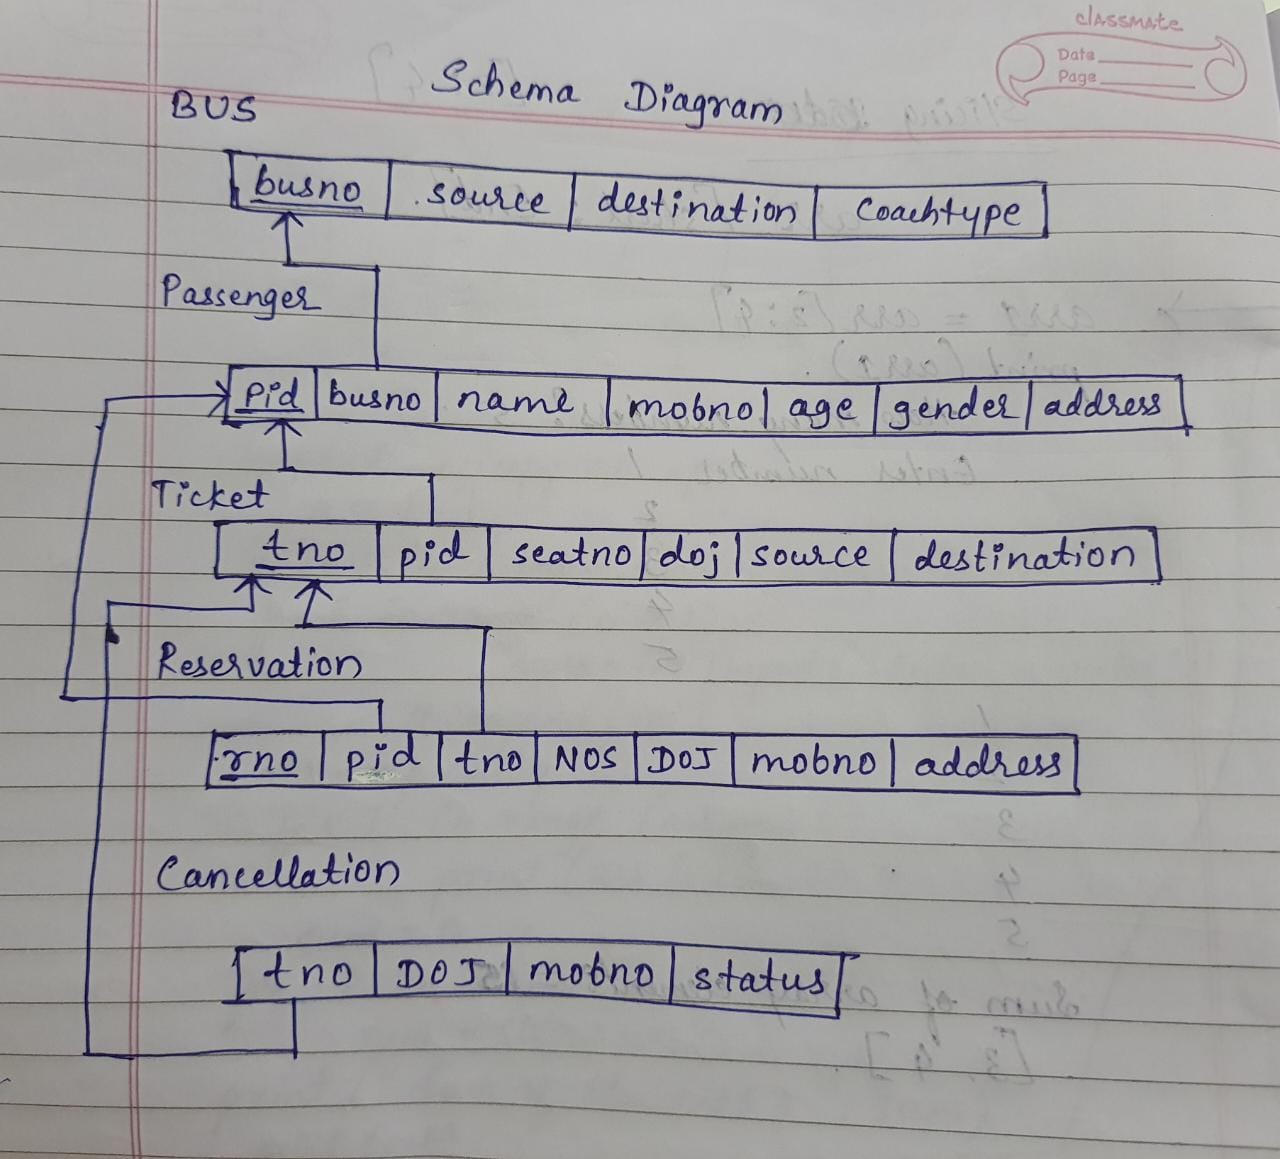 classmate
Date
Page
Schema Diagram
BUS
busno source destination Coachtype
Passenger
pid busno name mobno age gender address
Ticket
tno pid seatno doj source destination
Reservation
rno pid tno NOS DOJ mobno address
Cancellation
tno DOJ mobno status